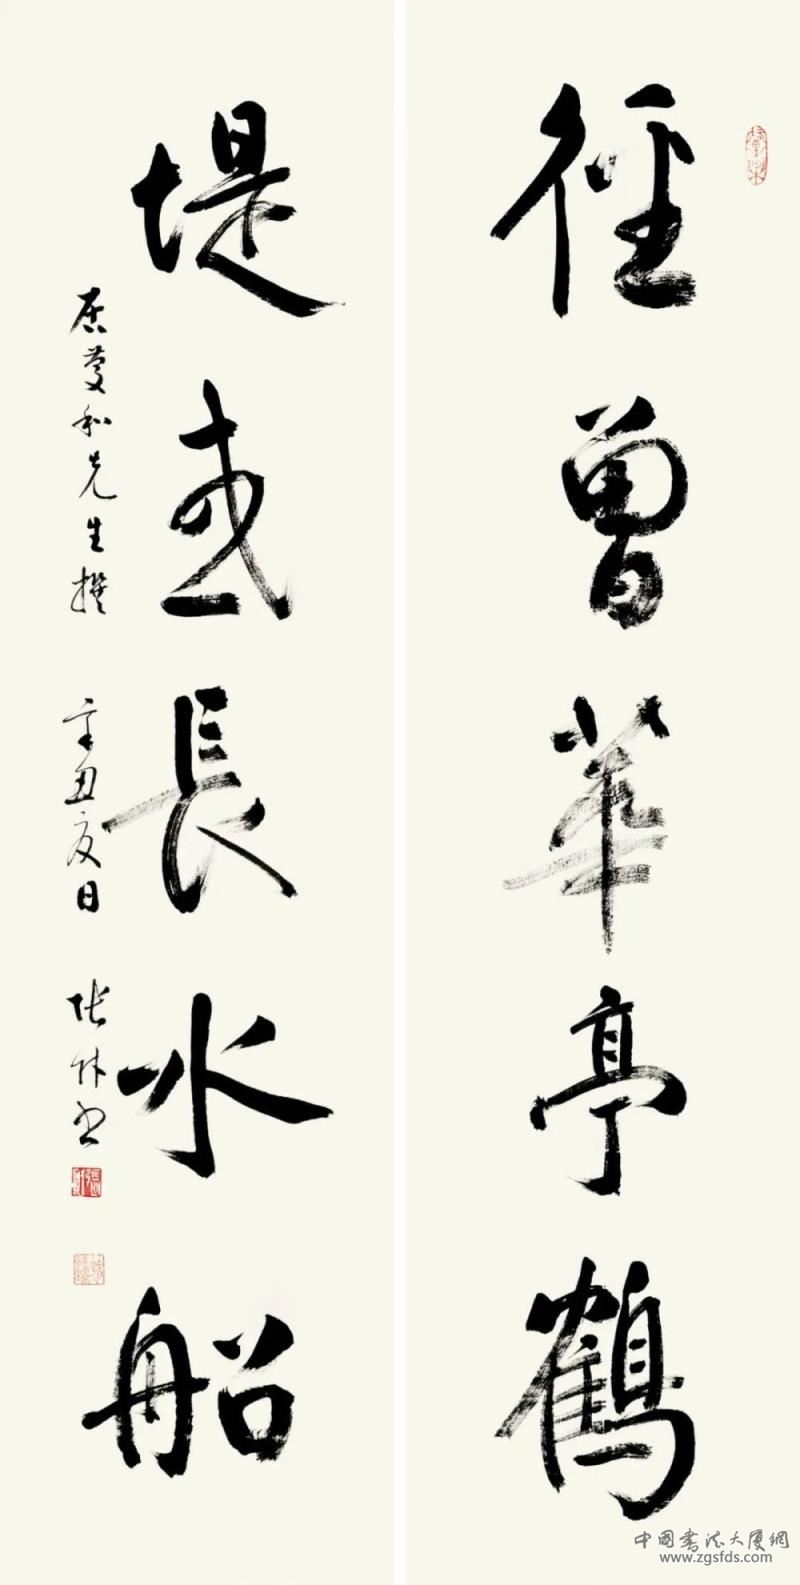 徑曾華亭鶴
堤或長水船
和先生撰
辛丑夏日
張林書
中國書法大厦網
www.zgsfds.com